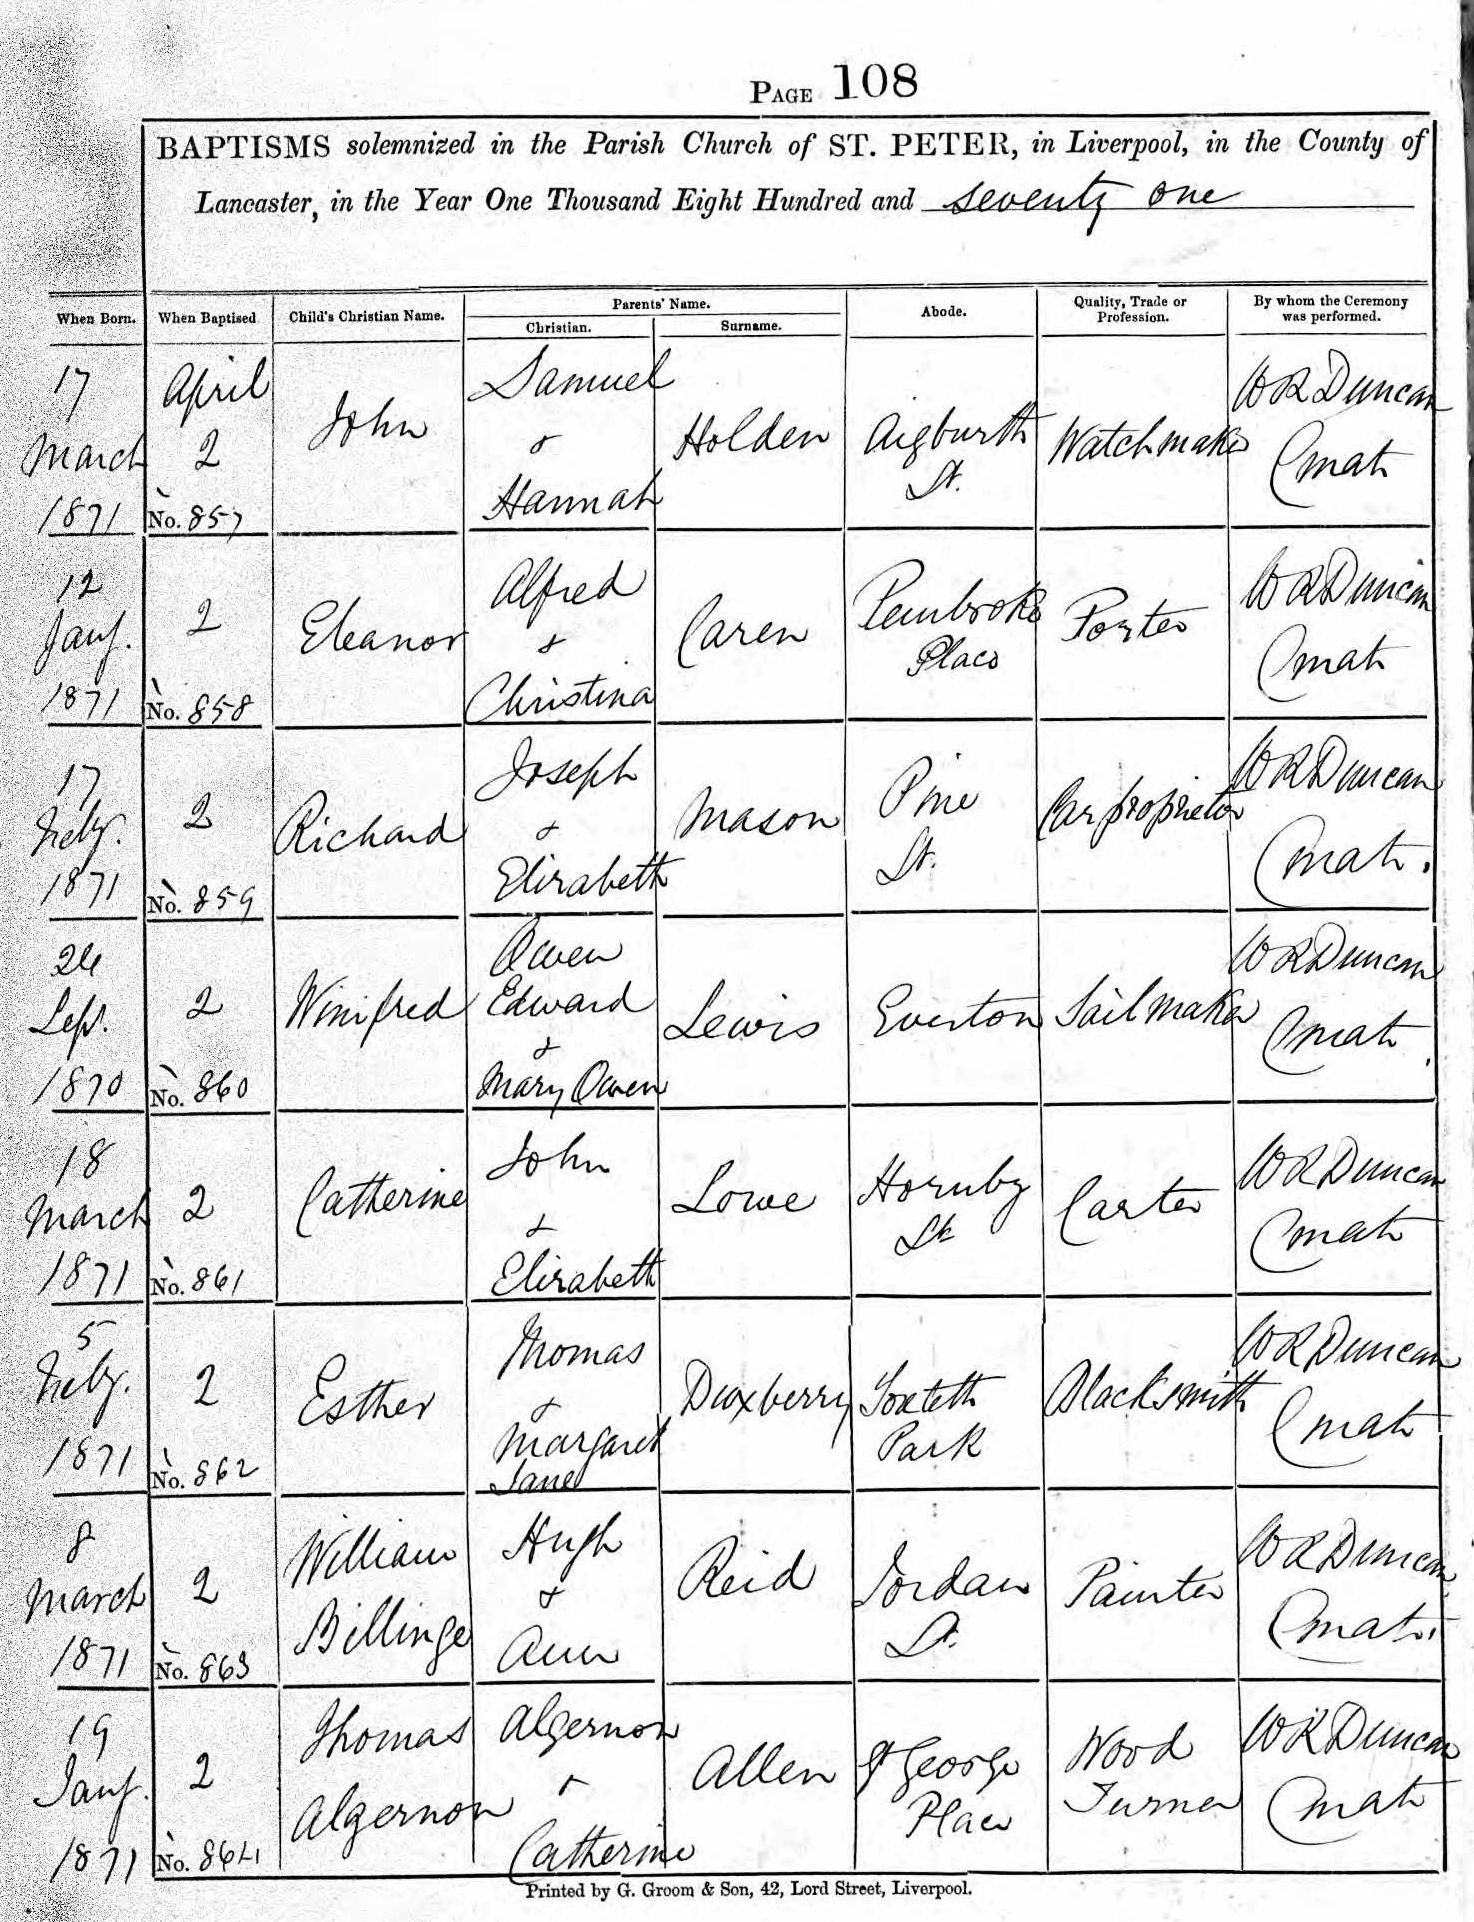 PAGE 108
BAPTISMS solemnized in the Parish Church of ST. PETER, in Liverpool, in the County of
Lancaster, in the Year One Thousand Eight Hundred and seventy one
When Born.
When Baptised
Child's Christian Name.
Parents' Name.
Christian.
Surname.
Abode.
Quality, Trade or
Profession.
By whom the Ceremony
was performed.
17
March
1871
April
2
No. 857
John
Samuel
&
Hannah
Holden
Aigburth
St.
Watchmaker
W R Duncan
Curate
12
Jany.
1871
2
No. 858
Eleanor
Alfred
&
Christina
Caren
Pembroke
Place
Porter
W R Duncan
Curate
17
Feby.
1871
2
No. 859
Richard
Joseph
&
Elizabeth
Mason
Pine
St.
Car proprietor
W R Duncan
Curate.
24
Sept.
1870
2
No. 860
Winifred
Owen
Edward
&
Mary Owen
Lewis
Everton
Sailmaker
W R Duncan
Curate
18
March
1871
2
No. 861
Catherine
John
&
Elizabeth
Lowe
Hornby
St
Carter
W R Duncan
Curate
5
Feby.
1871
2
No. 862
Esther
Thomas
&
Margaret
Jane
Duxberry
Toxteth
Park
Blacksmith
W R Duncan
Curate
8
March
1871
2
No. 863
William
Billinge
Hugh
&
Ann
Reid
Jordan
St.
Painter
W R Duncan
Curate.
19
Jany.
1871
2
No. 864
Thomas
Algernon
Algernon
&
Catherine
Allen
St George
Place
Wood
Turner
W R Duncan
Curate
Printed by G. Groom & Son, 42, Lord Street, Liverpool.